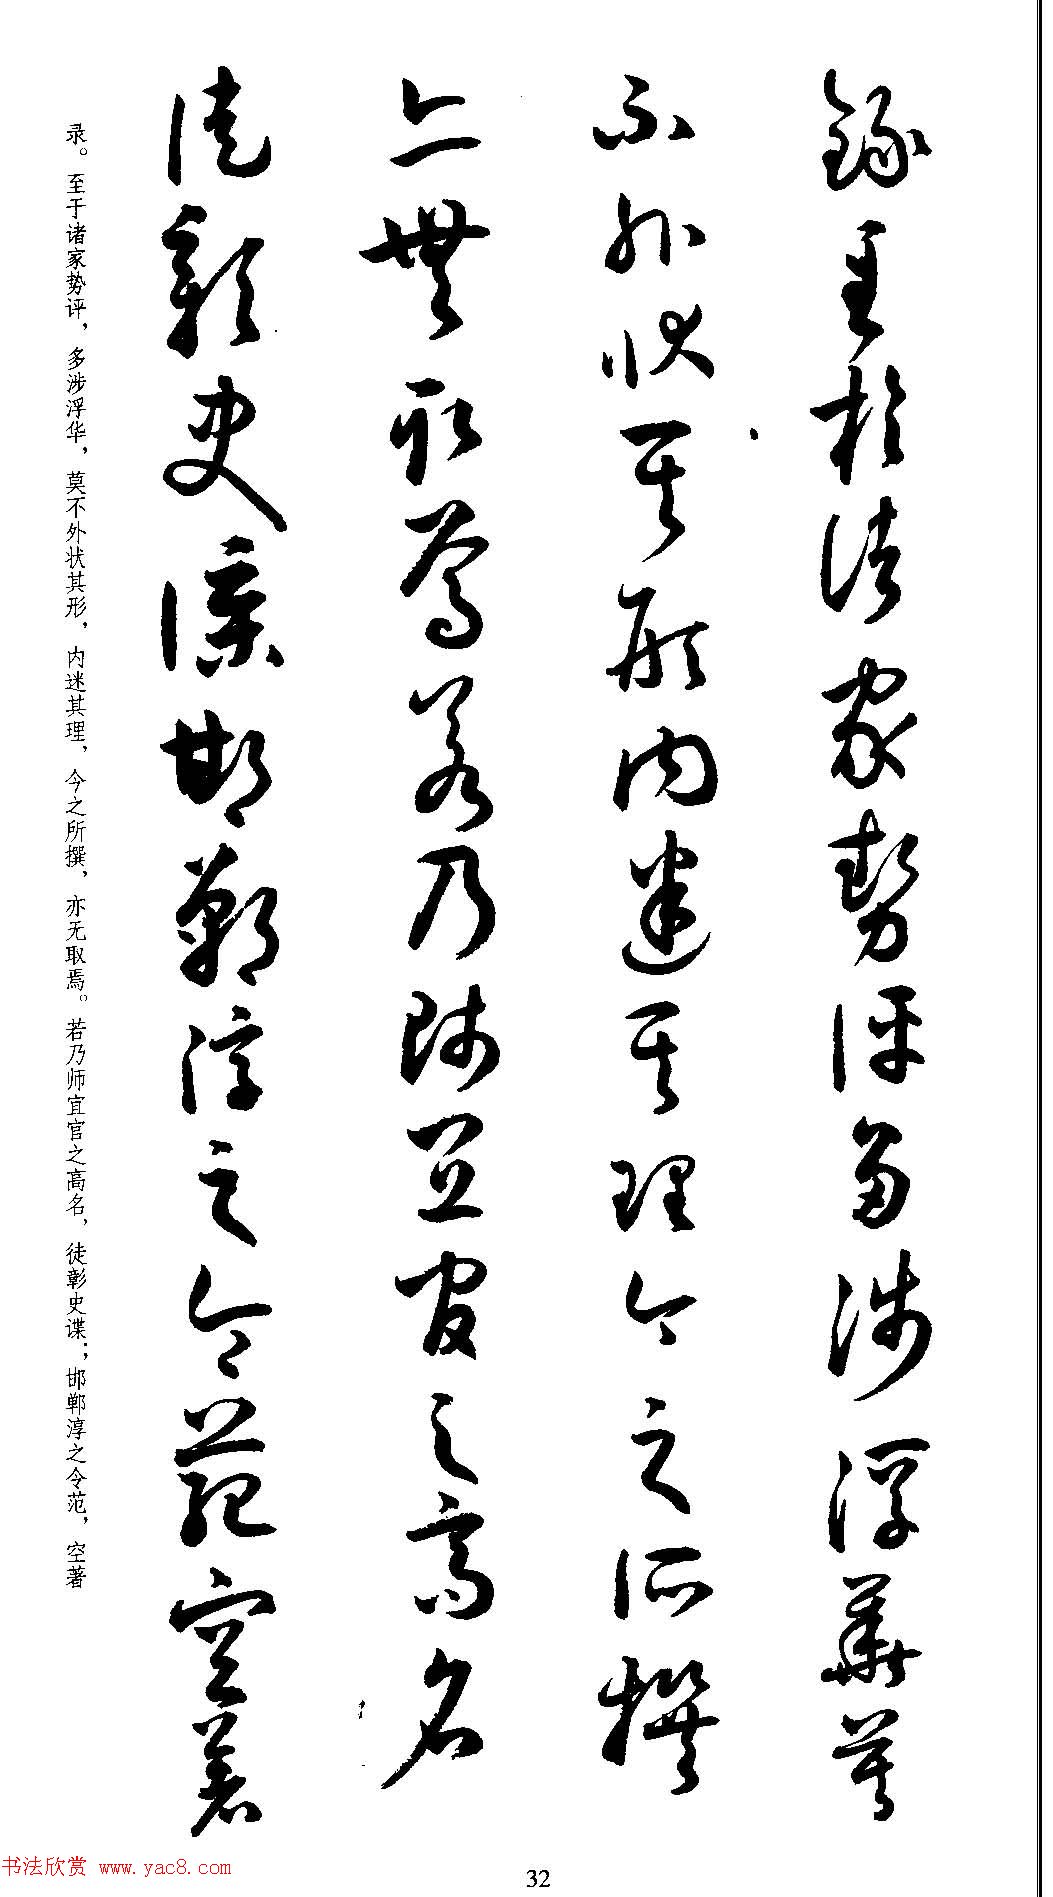 錄至於諸家勢評多涉浮華莫
不外狀其形內迷其理今之所撰
亦無取焉若乃師宜官之高名
徒彰史諜邯鄲淳之令範空著
录。至于诸家势评，多涉浮华，莫不外状其形，内迷其理，今之所撰，亦无取焉。若乃师宜官之高名，徒彰史谍；邯郸淳之令范，空著
书法欣赏 www.yac8.com
32